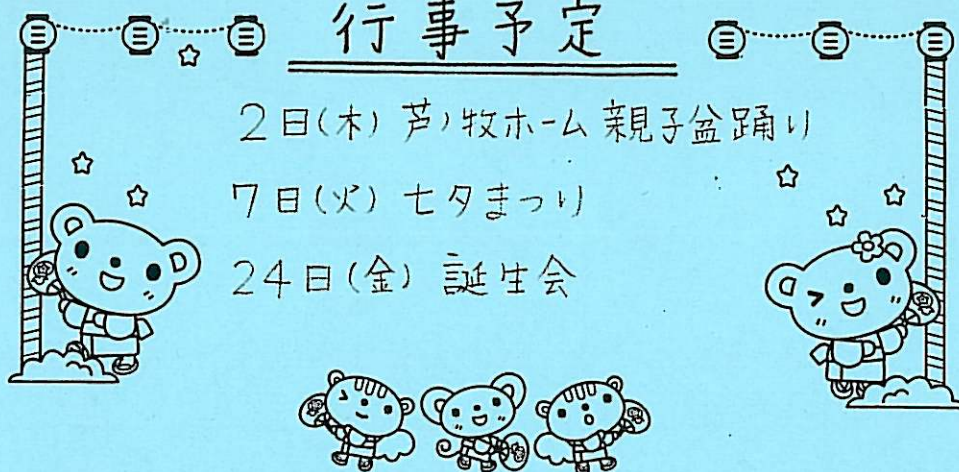 行事予定
2日(木) 芦ノ牧ホーム 親子盆踊り
7日(火) 七夕まつり
24日(金) 誕生会